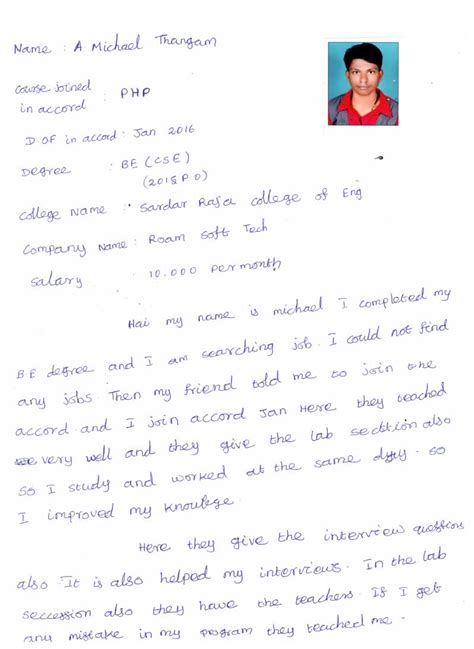 Name : A Michael Thangam
course joined
in accord : PHP
D.OF in accord : Jan 2016
Degree : BE (CSE)
(2015 P.O)
college Name : Sardar Raja college of Eng
Company Name : Roam Soft Tech
Salary : 10.000 per month
Hai my name is michael I completed my
BE degree and I am searching job. I could not find
any jobs. Then my friend told me to join the
accord and I join accord Jan Here they teached
very well and they give the lab secttion also
so I study and worked at the same day. so
I improved my knowlege.
Here they give the interview questions
also It is also helped my interviews. In the lab
seccession also they have the teachers. If I get
any mistake in my program they teached me.